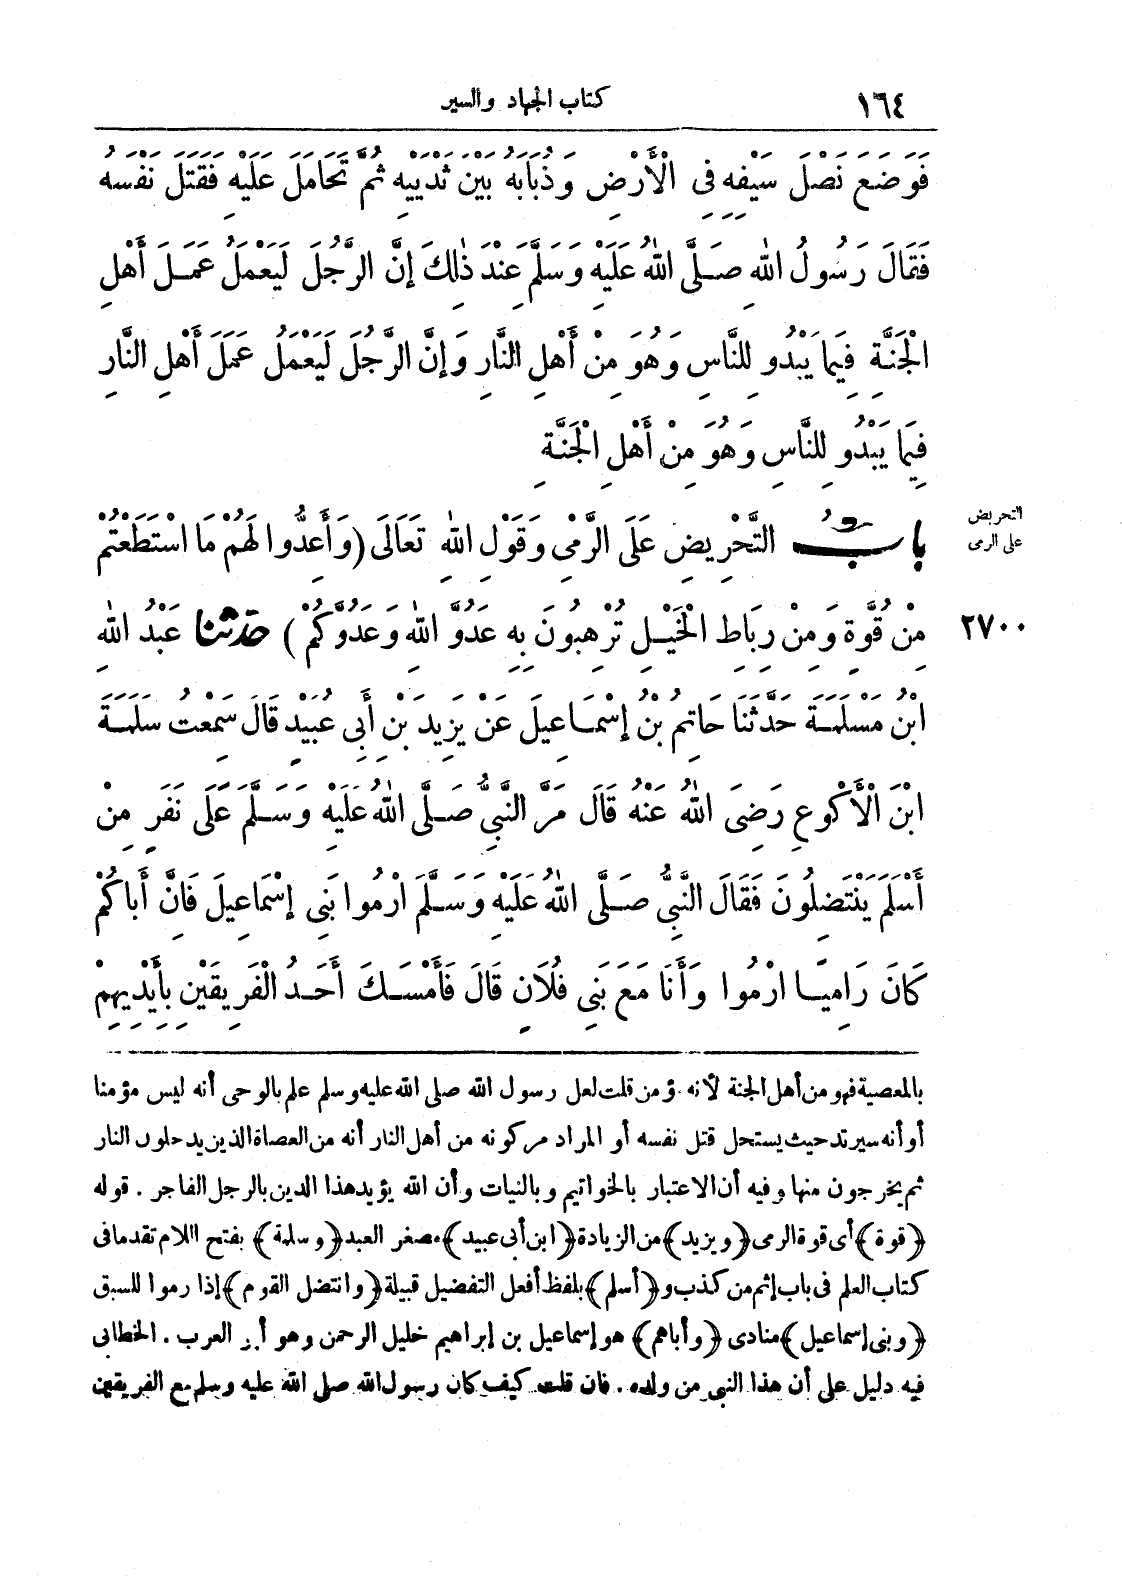 ١٦٤ كتاب الجهاد والسير
فَوَضَعَ نَصْلَ سَيْفِهِ فِى الْأَرْضِ وَذُبَابَهُ بَيْنَ ثَدْيَيْهِ ثُمَّ تَحَامَلَ عَلَيْهِ فَقَتَلَ نَفْسَهُ
فَقَالَ رَسُولُ اللهِ صَلَّى اللهُ عَلَيْهِ وَسَلَّمَ عِنْدَ ذٰلِكَ إِنَّ الرَّجُلَ لَيَعْمَلُ عَمَلَ أَهْلِ
الْجَنَّةِ فِيمَا يَبْدُو لِلنَّاسِ وَهُوَ مِنْ أَهْلِ النَّارِ وَإِنَّ الرَّجُلَ لَيَعْمَلُ عَمَلَ أَهْلِ النَّارِ
فِيمَا يَبْدُو لِلنَّاسِ وَهُوَ مِنْ أَهْلِ الْجَنَّةِ
التحريض
على الرمى
بَابُ التَّحْرِيضِ عَلَى الرَّمْىِ وَقَوْلِ اللهِ تَعَالَى (وَأَعِدُّوا لَهُمْ مَا اسْتَطَعْتُمْ
٢٧٠٠ مِنْ قُوَّةٍ وَمِنْ رِبَاطِ الْخَيْلِ تُرْهِبُونَ بِهِ عَدُوَّ اللهِ وَعَدُوَّكُمْ) حَدَّثَنَا عَبْدُ اللهِ
ابْنُ مَسْلَمَةَ حَدَّثَنَا حَاتِمُ بْنُ إِسْمَاعِيلَ عَنْ يَزِيدَ بْنِ أَبِى عُبَيْدٍ قَالَ سَمِعْتُ سَلَمَةَ
ابْنَ الْأَكْوَعِ رَضِىَ اللهُ عَنْهُ قَالَ مَرَّ النَّبِىُّ صَلَّى اللهُ عَلَيْهِ وَسَلَّمَ عَلَى نَفَرٍ مِنْ
أَسْلَمَ يَنْتَضِلُونَ فَقَالَ النَّبِىُّ صَلَّى اللهُ عَلَيْهِ وَسَلَّمَ ارْمُوا بَنِى إِسْمَاعِيلَ فَانَّ أَبَاكُمْ
كَانَ رَامِيًا ارْمُوا وَأَنَا مَعَ بَنِى فُلَانٍ قَالَ فَأَمْسَكَ أَحَدُ الْفَرِيقَيْنِ بِأَيْدِيهِمْ
بالمعصية فهو من أهل الجنة لأنه مؤمن قلت لعل رسول الله صلى الله عليه وسلم علم بالوحى أنه ليس مؤمنا
أو أنه سيرتد حيث يستحل قتل نفسه أو المراد من كونه من أهل النار أنه من العصاة الذين يدخلون النار
ثم يخرجون منها وفيه أن الاعتبار بالخواتيم وبالنيات وأن الله يؤيد هذا الدين بالرجل الفاجر . قوله
﴿قوة﴾ أى قوة الرمى ﴿ويزيد﴾ من الزيادة ﴿ابن أبى عبيد﴾ مصغر العبد ﴿وسلمة﴾ بفتح اللام تقدما فى
كتاب العلم فى باب إثم من كذب و ﴿أسلم﴾ بلفظ أفعل التفضيل قبيلة ﴿وانتضل القوم﴾ إذا رموا للسبق
﴿وبنى إسماعيل﴾ منادى ﴿وأباهم﴾ هو إسماعيل بن إبراهيم خليل الرحمن وهو أبو العرب . الخطابى
فيه دليل على أن هذا النبى من ولده . فان قلت كيف كان رسول الله صلى الله عليه وسلم مع الفريقين